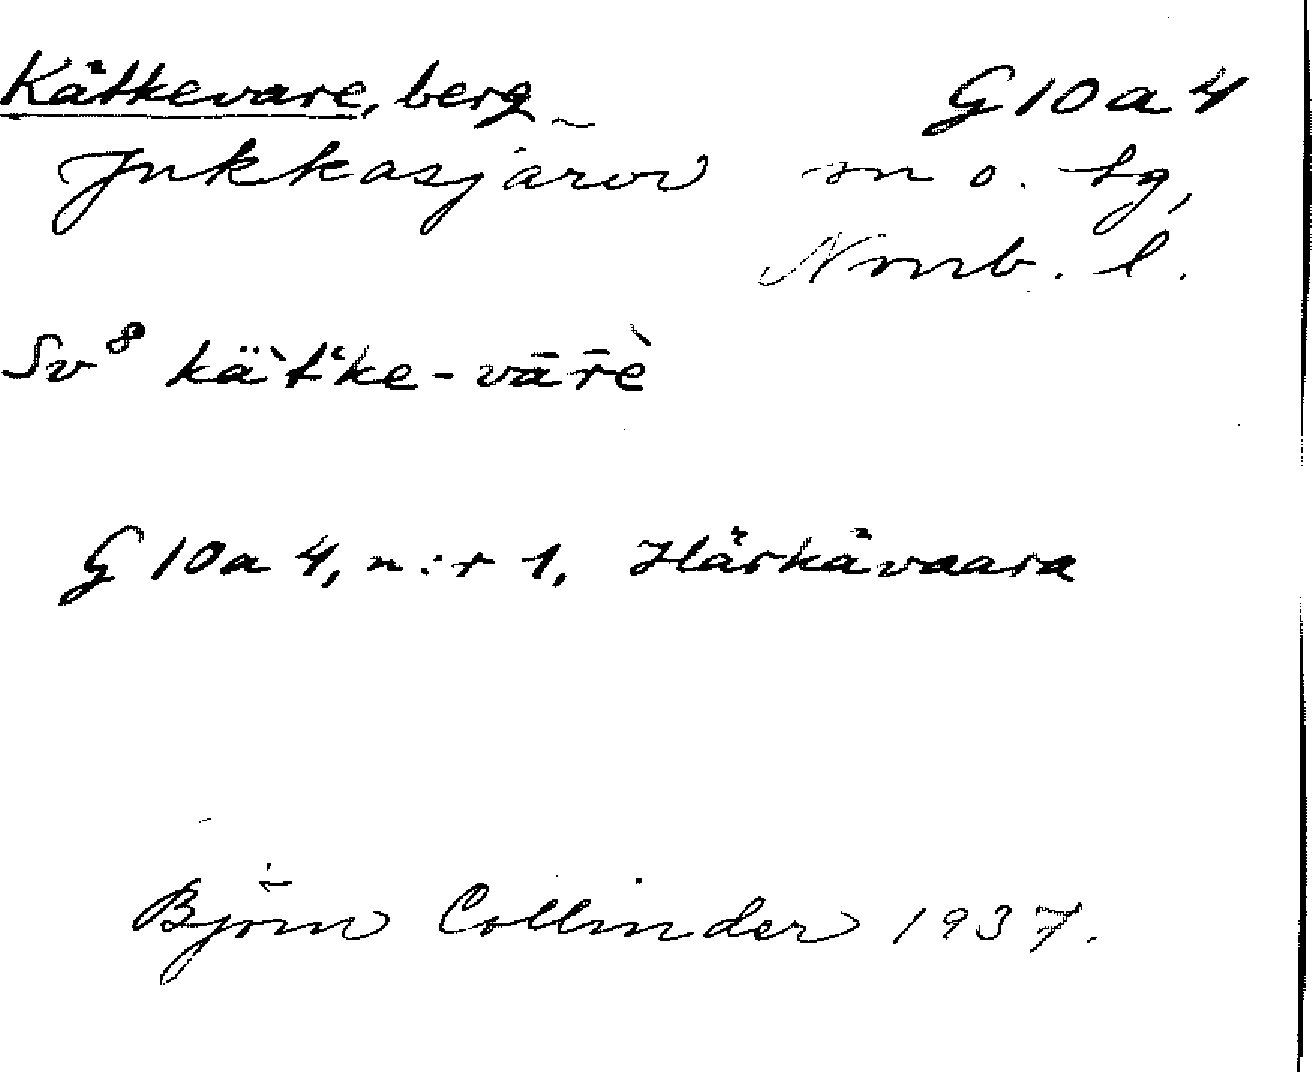 Kätkevare, berg G10a4
Jukkasjärvi sn o. tg,
Norrb. l.
Sv⁸ kä̀t‘ke-vār̄è
G 10a 4, n:r 1, Härkävaara
Björn Collinder 1937.